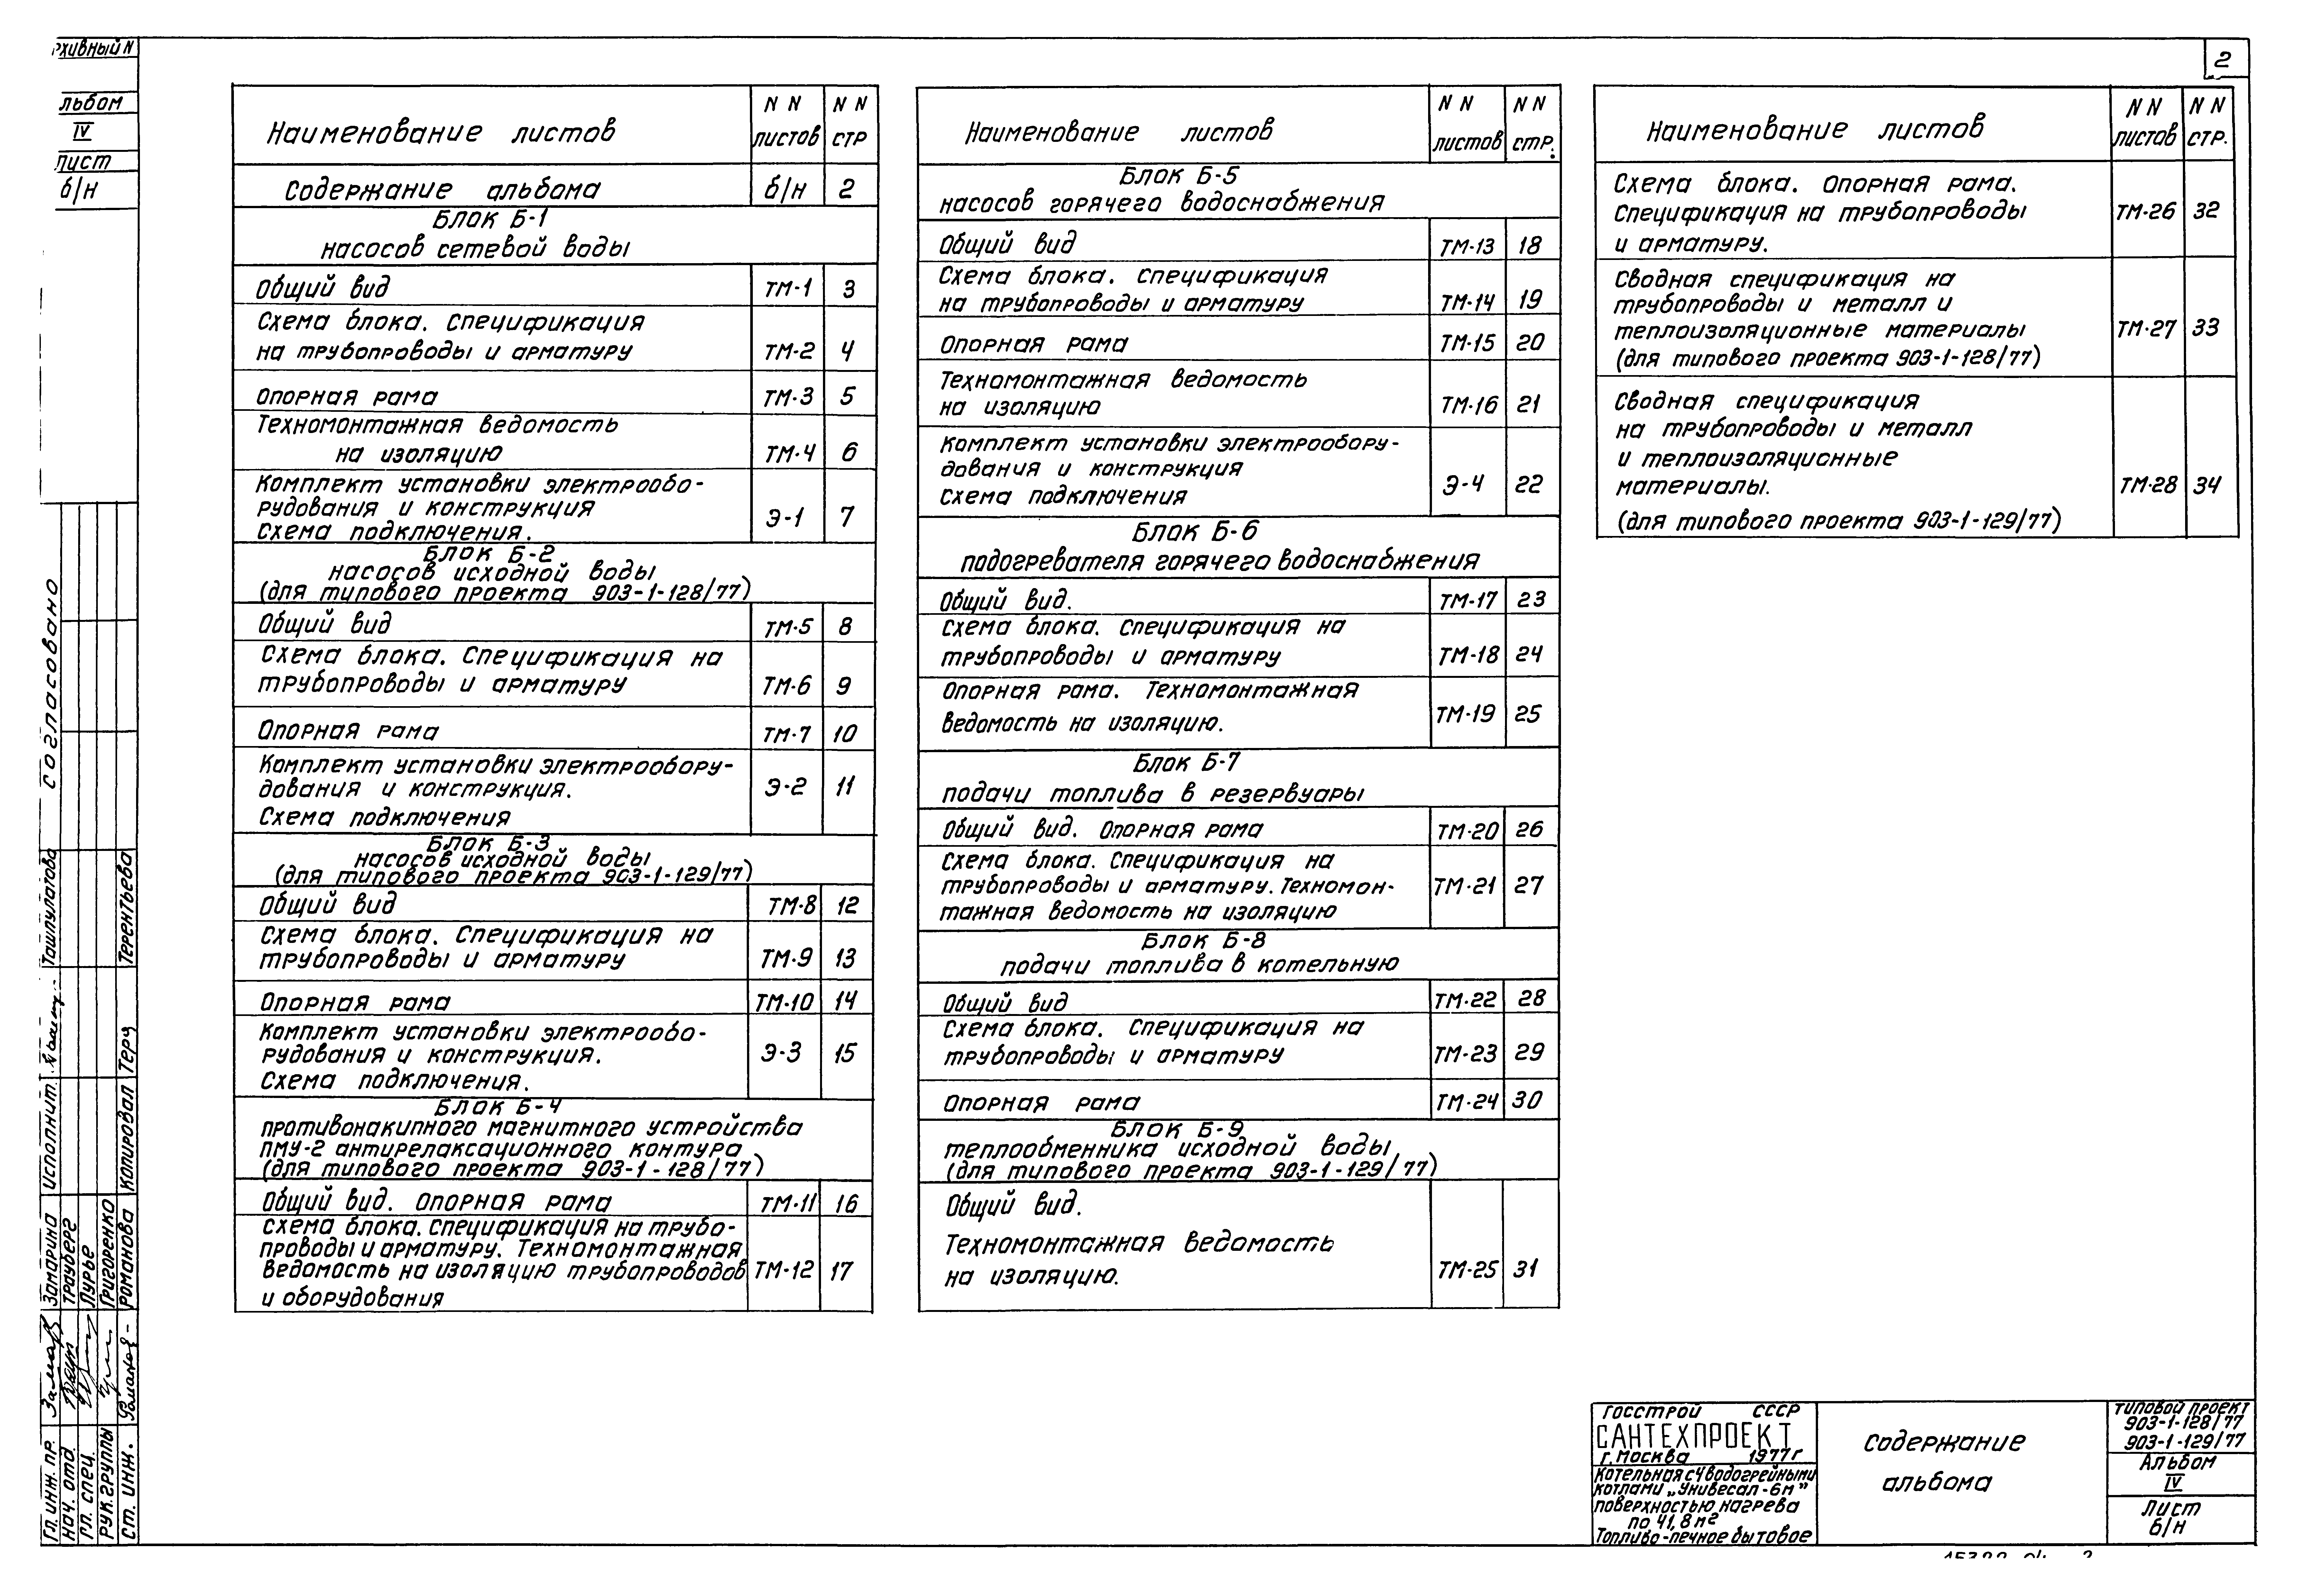 2
рхивный N
льбом
IV
лист
б/н
Наименование листов
N N листов
N N стр
Содержание альбома б/н 2
Блок Б-1
насосов сетевой воды
Общий вид ТМ-1 3
Схема блока. Спецификация
на трубопроводы и арматуру ТМ-2 4
Опорная рама ТМ-3 5
Техномонтажная ведомость
на изоляцию ТМ-4 6
Комплект установки электрообо-
рудования и конструкция
Схема подключения. Э-1 7
Блок Б-2
насосов исходной воды
(для типового проекта 903-1-128/77)
Общий вид ТМ-5 8
Схема блока. Спецификация на
трубопроводы и арматуру ТМ-6 9
Опорная рама ТМ-7 10
Комплект установки электрообору-
дования и конструкция. Э-2 11
Схема подключения
Блок Б-3
насосов исходной воды
(для типового проекта 903-1-129/77)
Общий вид ТМ-8 12
Схема блока. Спецификация на
трубопроводы и арматуру ТМ-9 13
Опорная рама ТМ-10 14
Комплект установки электрообо-
рудования и конструкция. Э-3 15
Схема подключения.
Блок Б-4
противонакипного магнитного устройства
ПМУ-2 антирелаксационного контура
(для типового проекта 903-1-128/77)
Общий вид. Опорная рама ТМ-11 16
Схема блока. Спецификация на трубо-
проводы и арматуру. Техномонтажная
ведомость на изоляцию трубопроводов ТМ-12 17
и оборудования
Наименование листов
N N листов
N N стр.
Блок Б-5
насосов горячего водоснабжения
Общий вид ТМ-13 18
Схема блока. Спецификация
на трубопроводы и арматуру ТМ-14 19
Опорная рама ТМ-15 20
Техномонтажная ведомость
на изоляцию ТМ-16 21
Комплект установки электрообору-
дования и конструкция
Схема подключения Э-4 22
Блок Б-6
подогревателя горячего водоснабжения
Общий вид. ТМ-17 23
Схема блока. Спецификация на
трубопроводы и арматуру ТМ-18 24
Опорная рама. Техномонтажная
ведомость на изоляцию. ТМ-19 25
Блок Б-7
подачи топлива в резервуары
Общий вид. Опорная рама ТМ-20 26
Схема блока. Спецификация на
трубопроводы и арматуру. Техномон-
тажная ведомость на изоляцию ТМ-21 27
Блок Б-8
подачи топлива в котельную
Общий вид ТМ-22 28
Схема блока. Спецификация на
трубопроводы и арматуру ТМ-23 29
Опорная рама ТМ-24 30
Блок Б-9
теплообменника исходной воды
(для типового проекта 903-1-129/77)
Общий вид.
Техномонтажная ведомость
на изоляцию. ТМ-25 31
Наименование листов
N N листов
N N стр.
Схема блока. Опорная рама.
Спецификация на трубопроводы ТМ-26 32
и арматуру.
Сводная спецификация на
трубопроводы и металл и
теплоизоляционные материалы ТМ-27 33
(для типового проекта 903-1-128/77)
Сводная спецификация
на трубопроводы и металл
и теплоизоляционные
материалы. ТМ-28 34
(для типового проекта 903-1-129/77)
согласовано
Гл. инж. пр. Замарина Исполнит. Ташпулатова
Нач. отд. Трауберг
Гл. спец. Лурье
Рук. группы Григоренко
Ст. инж. Романова Копировал Терентьева
Госстрой СССР
САНТЕХПРОЕКТ
г. Москва 1977г
Котельная с 4 водогрейными
котлами „Универсал-6м"
поверхностью нагрева
по 41,8 м²
Топливо-печное бытовое
Содержание
альбома
Типовой проект
903-1-128/77
903-1-129/77
Альбом
IV
Лист
б/н